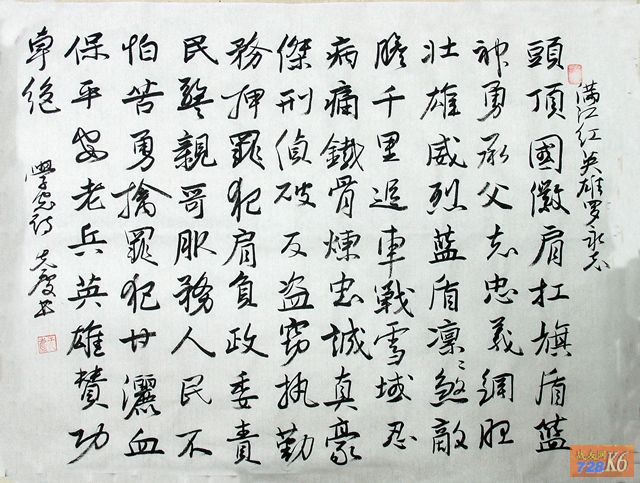 满江红英雄罗永志
頭頂國徽肩扛旗盾籃
神勇承父志忠義鋼胆
壯雄威烈蓝盾凛〻煞敵
膽千里追車戰雪域忍
病痛鐵骨煉忠誠真豪
傑刑偵破反盗窃执勤
務押罪犯肩負政委責
民警親哥服務人民不
怕苦勇擒罪犯廿灑血
保平安老兵英雄賛功
卓绝
战友网
728K6